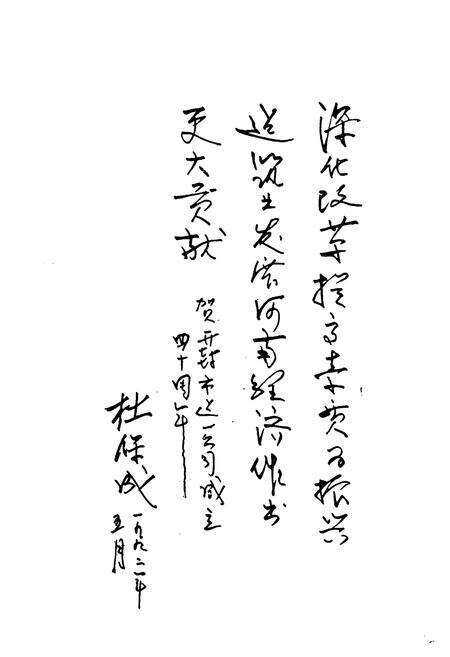 深化改革提高素质为振兴
建筑业发展河南经济作出
更大贡献
贺开封市建一公司成立
四十周年
杜保成
一九九二年
五月